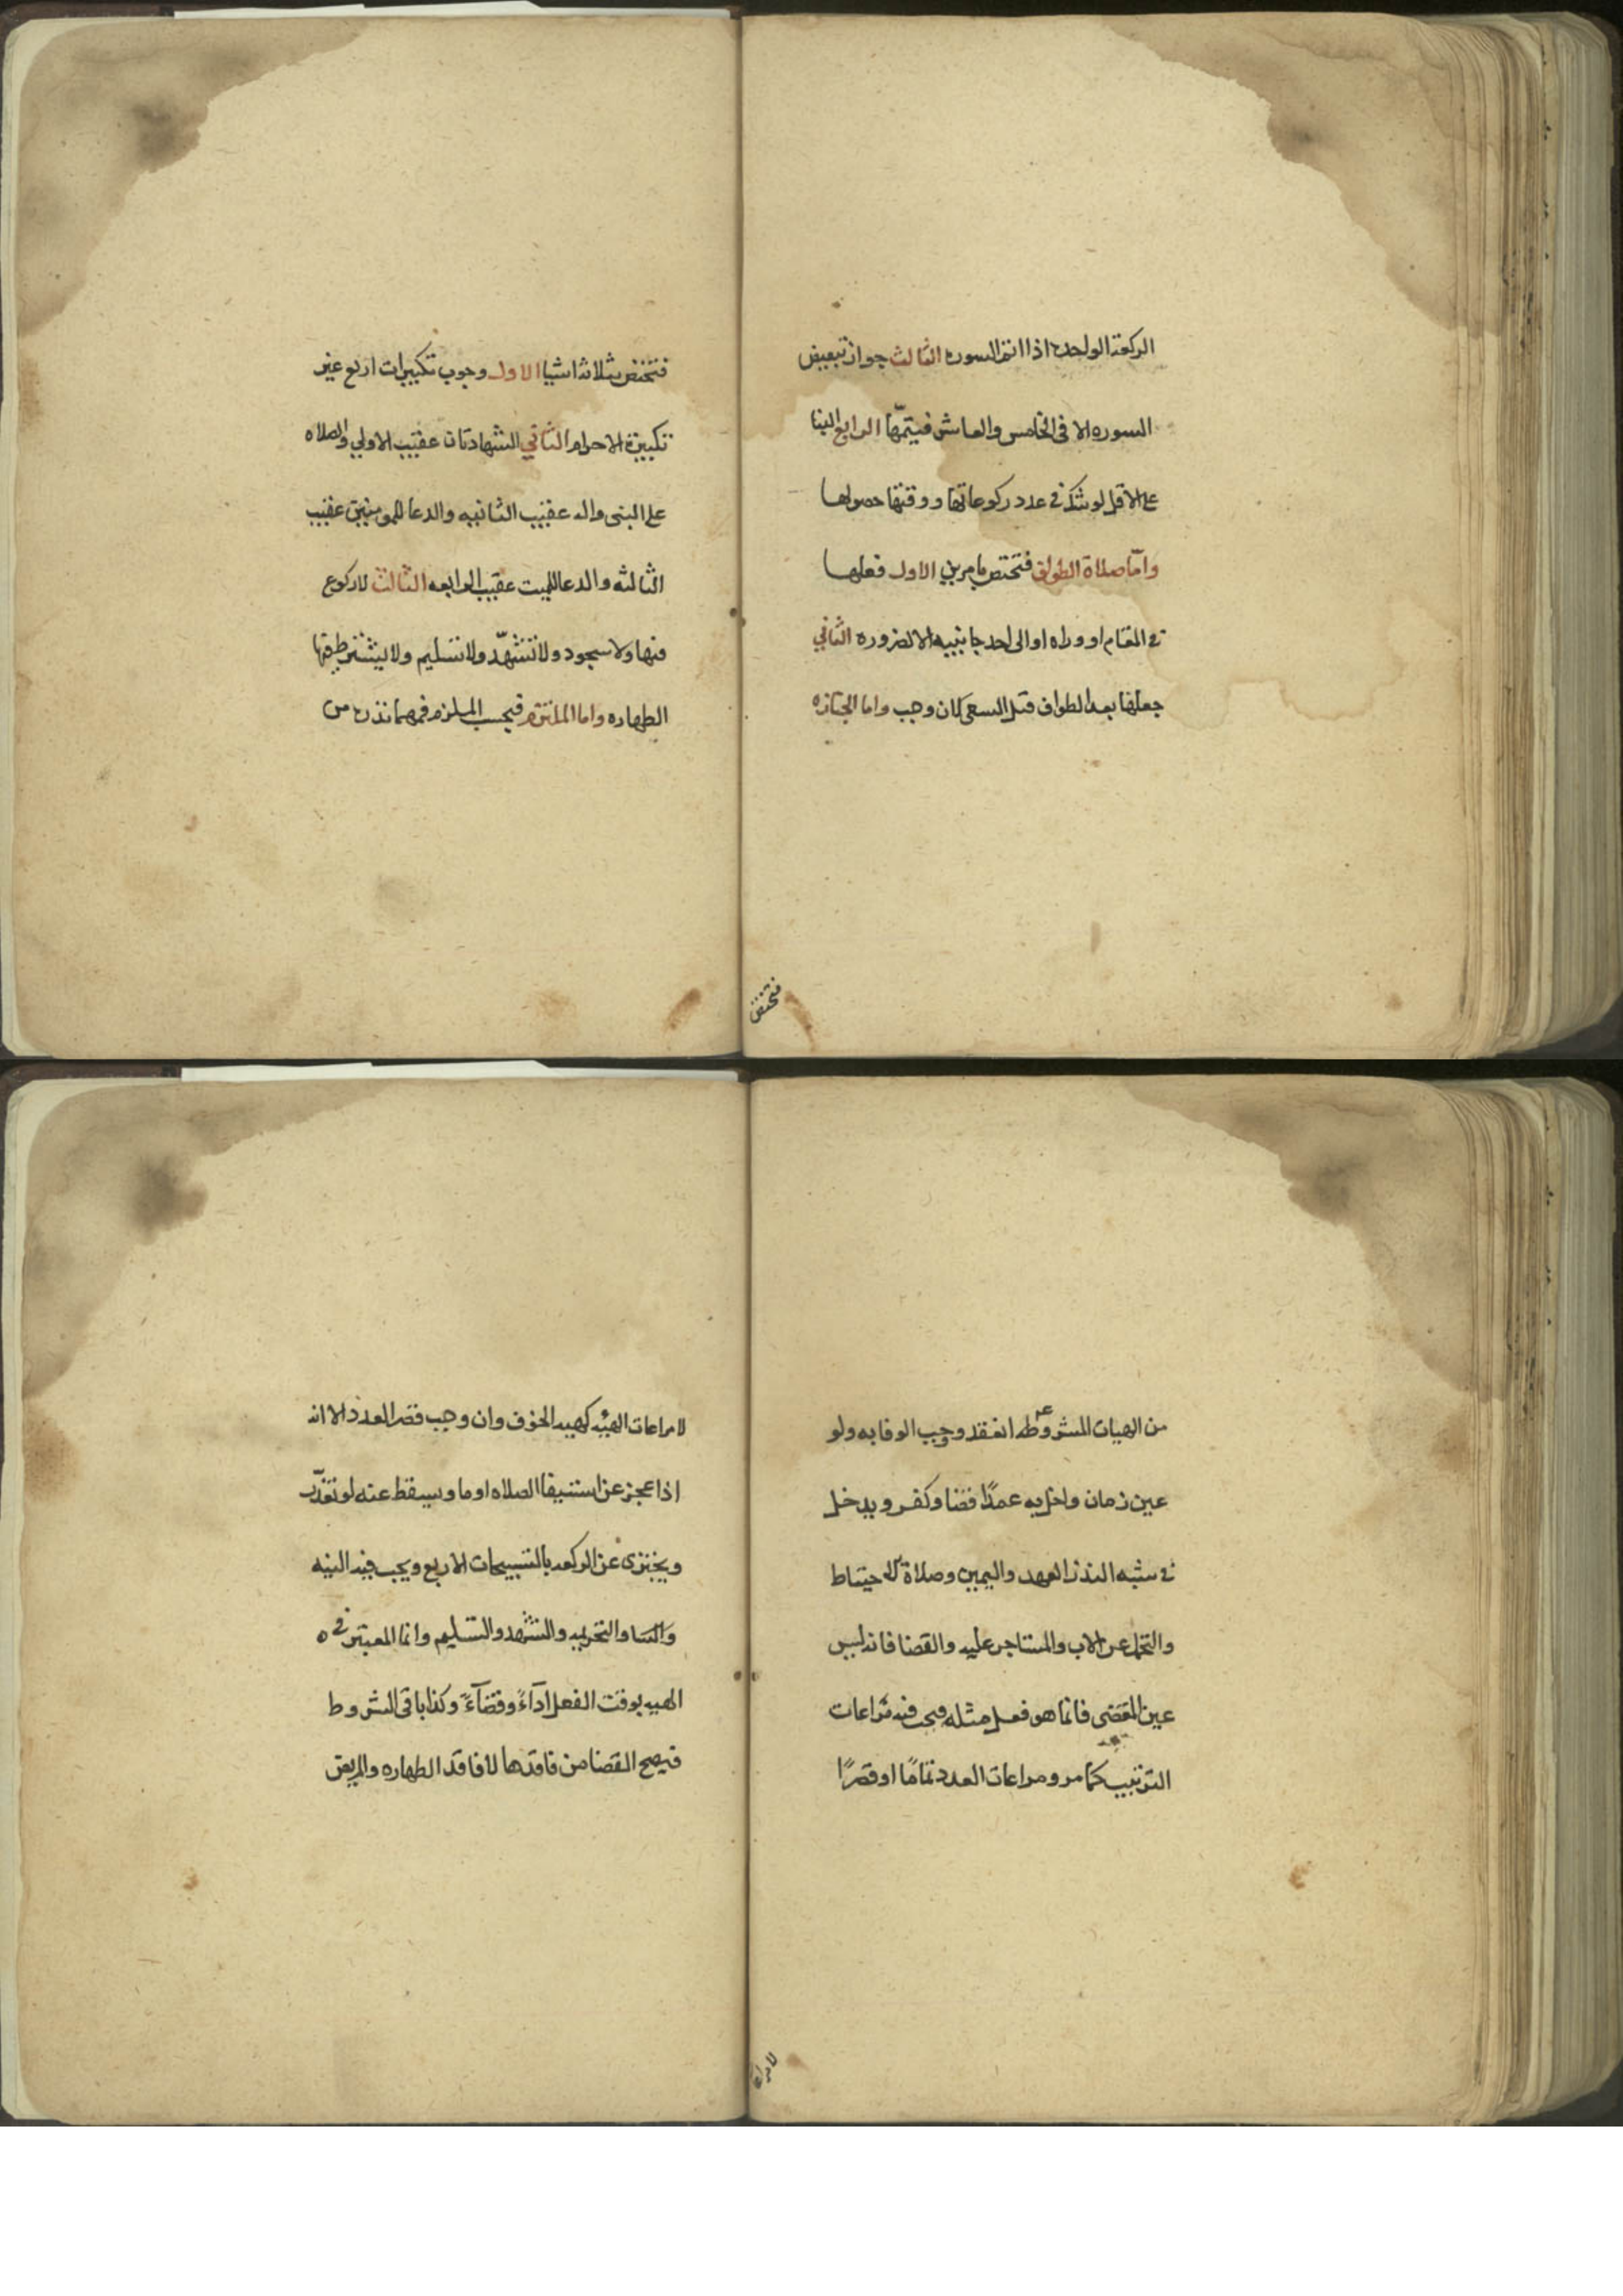 الركعة الواحدة اذا اتم السوره الثالث جواز تبعيض
السوره الا فى الخامس والعاشر فيتمّها الرابع البنا
على الاقل لو شك فى عدد ركوعاتها ووقتها حصولها
وامّا صلاة الطواف فتختص بامرين الاول فعلها
فى المقام او وراه او الى احد جانبيه الا لضروره الثاني
جعلها بعد الطواف قبل السعى ان وجب واما الجنازه
فتختص
فتختص بثلاثه اشيا الاول وجوب تكبيرات اربع غير
تكبيرة الاحرام الثاني الشهادتان عقيب الاولي والصلاه
على النبى واله عقيب الثانيه والدعا للمومنين عقيب
الثالثه والدعا للميت عقيب الرابعه الثالث لا ركوع
فيها ولا سجود ولا تشهّد ولا تسليم ولا يشترط فيها
الطهاره واما الملتزم فبحسب الملزم فمهما نذره من
من الهيات المشروطه انعقد وجب الوفا به ولو
عين زمان واخل به عمدًا قضا وكفر ويدخل
فى شبه النذر العهد واليمين وصلاة الاحتياط
والتحمل عن الاب والمستاجر عليه والقضا فانه ليس
عين المقضى فانما هو فعل مثله فيجب فيه مراعات
الترتيب كما مر ومراعات العدد تمامًا او قصرًا
لا مراعات
لا مراعات الهيه كهيه الخوف وان وجب قصر العدد الا انه
اذا عجز عن استيفا الصلاه اوما ويسقط عنه لو تعذّر
ويجتزى عن الركعه بالتسبيحات الاربع ويجب فيه النيه
والتحريمه والتشهد والتسليم وانما المعتبر فى
الهيه بوقت الفعل ادآءً وقضآءً وكذا باقى الشروط
فيصح القضا من فاقدها لا فاقد الطهاره والمريض